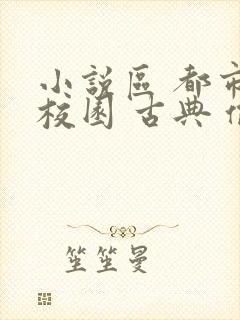 小說區 都市
校園 古典
笙笙曼